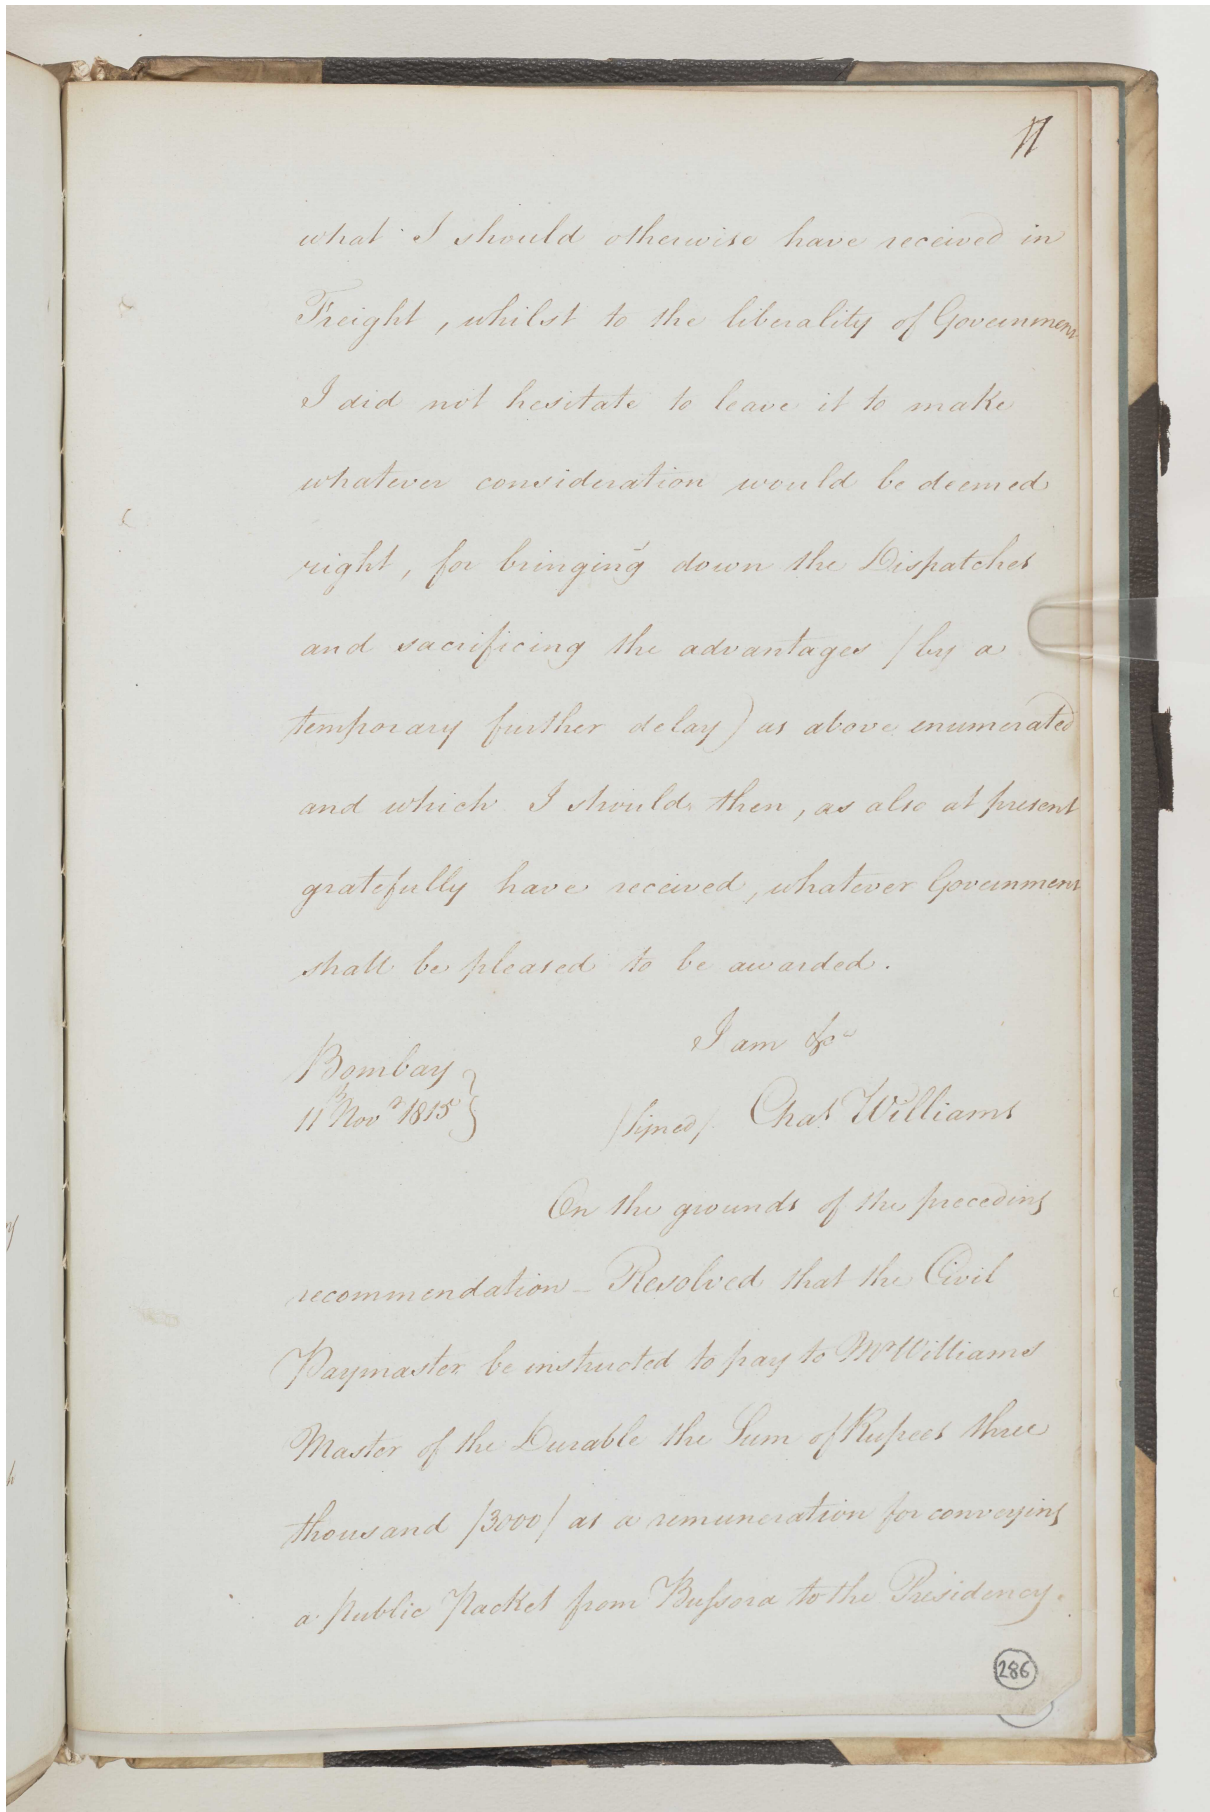 11
what I should otherwise have received in
Freight, whilst to the liberality of Government
I did not hesitate to leave it to make
whatever consideration would be deemed
right, for bringing down the Dispatches
and sacrificing the advantages /by a
temporary further delay) as above enumerated
and which I should then, as also at present
gratefully have received, whatever Government
shall be pleased to be awarded.
I am &c
Bombay
11th Novr 1815
/signed/ Chas Williams
On the grounds of the preceding
recommendation - Resolved that the Civil
Paymaster be instructed to pay to Mr Williams
Master of the Durable the Sum of Rupees three
thousand /3000/ as a remuneration for conveying
a public Packet from Bussora to the Presidency.
286